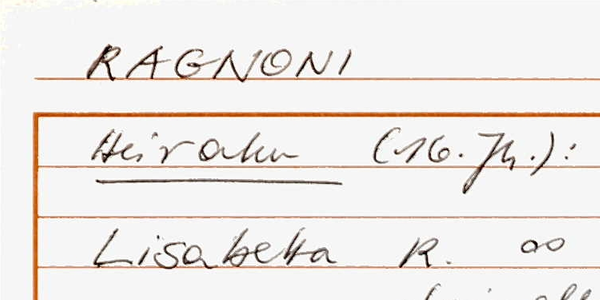 RAGNONI
Heiraten (16. Jh.):
Lisabetta R. ∞